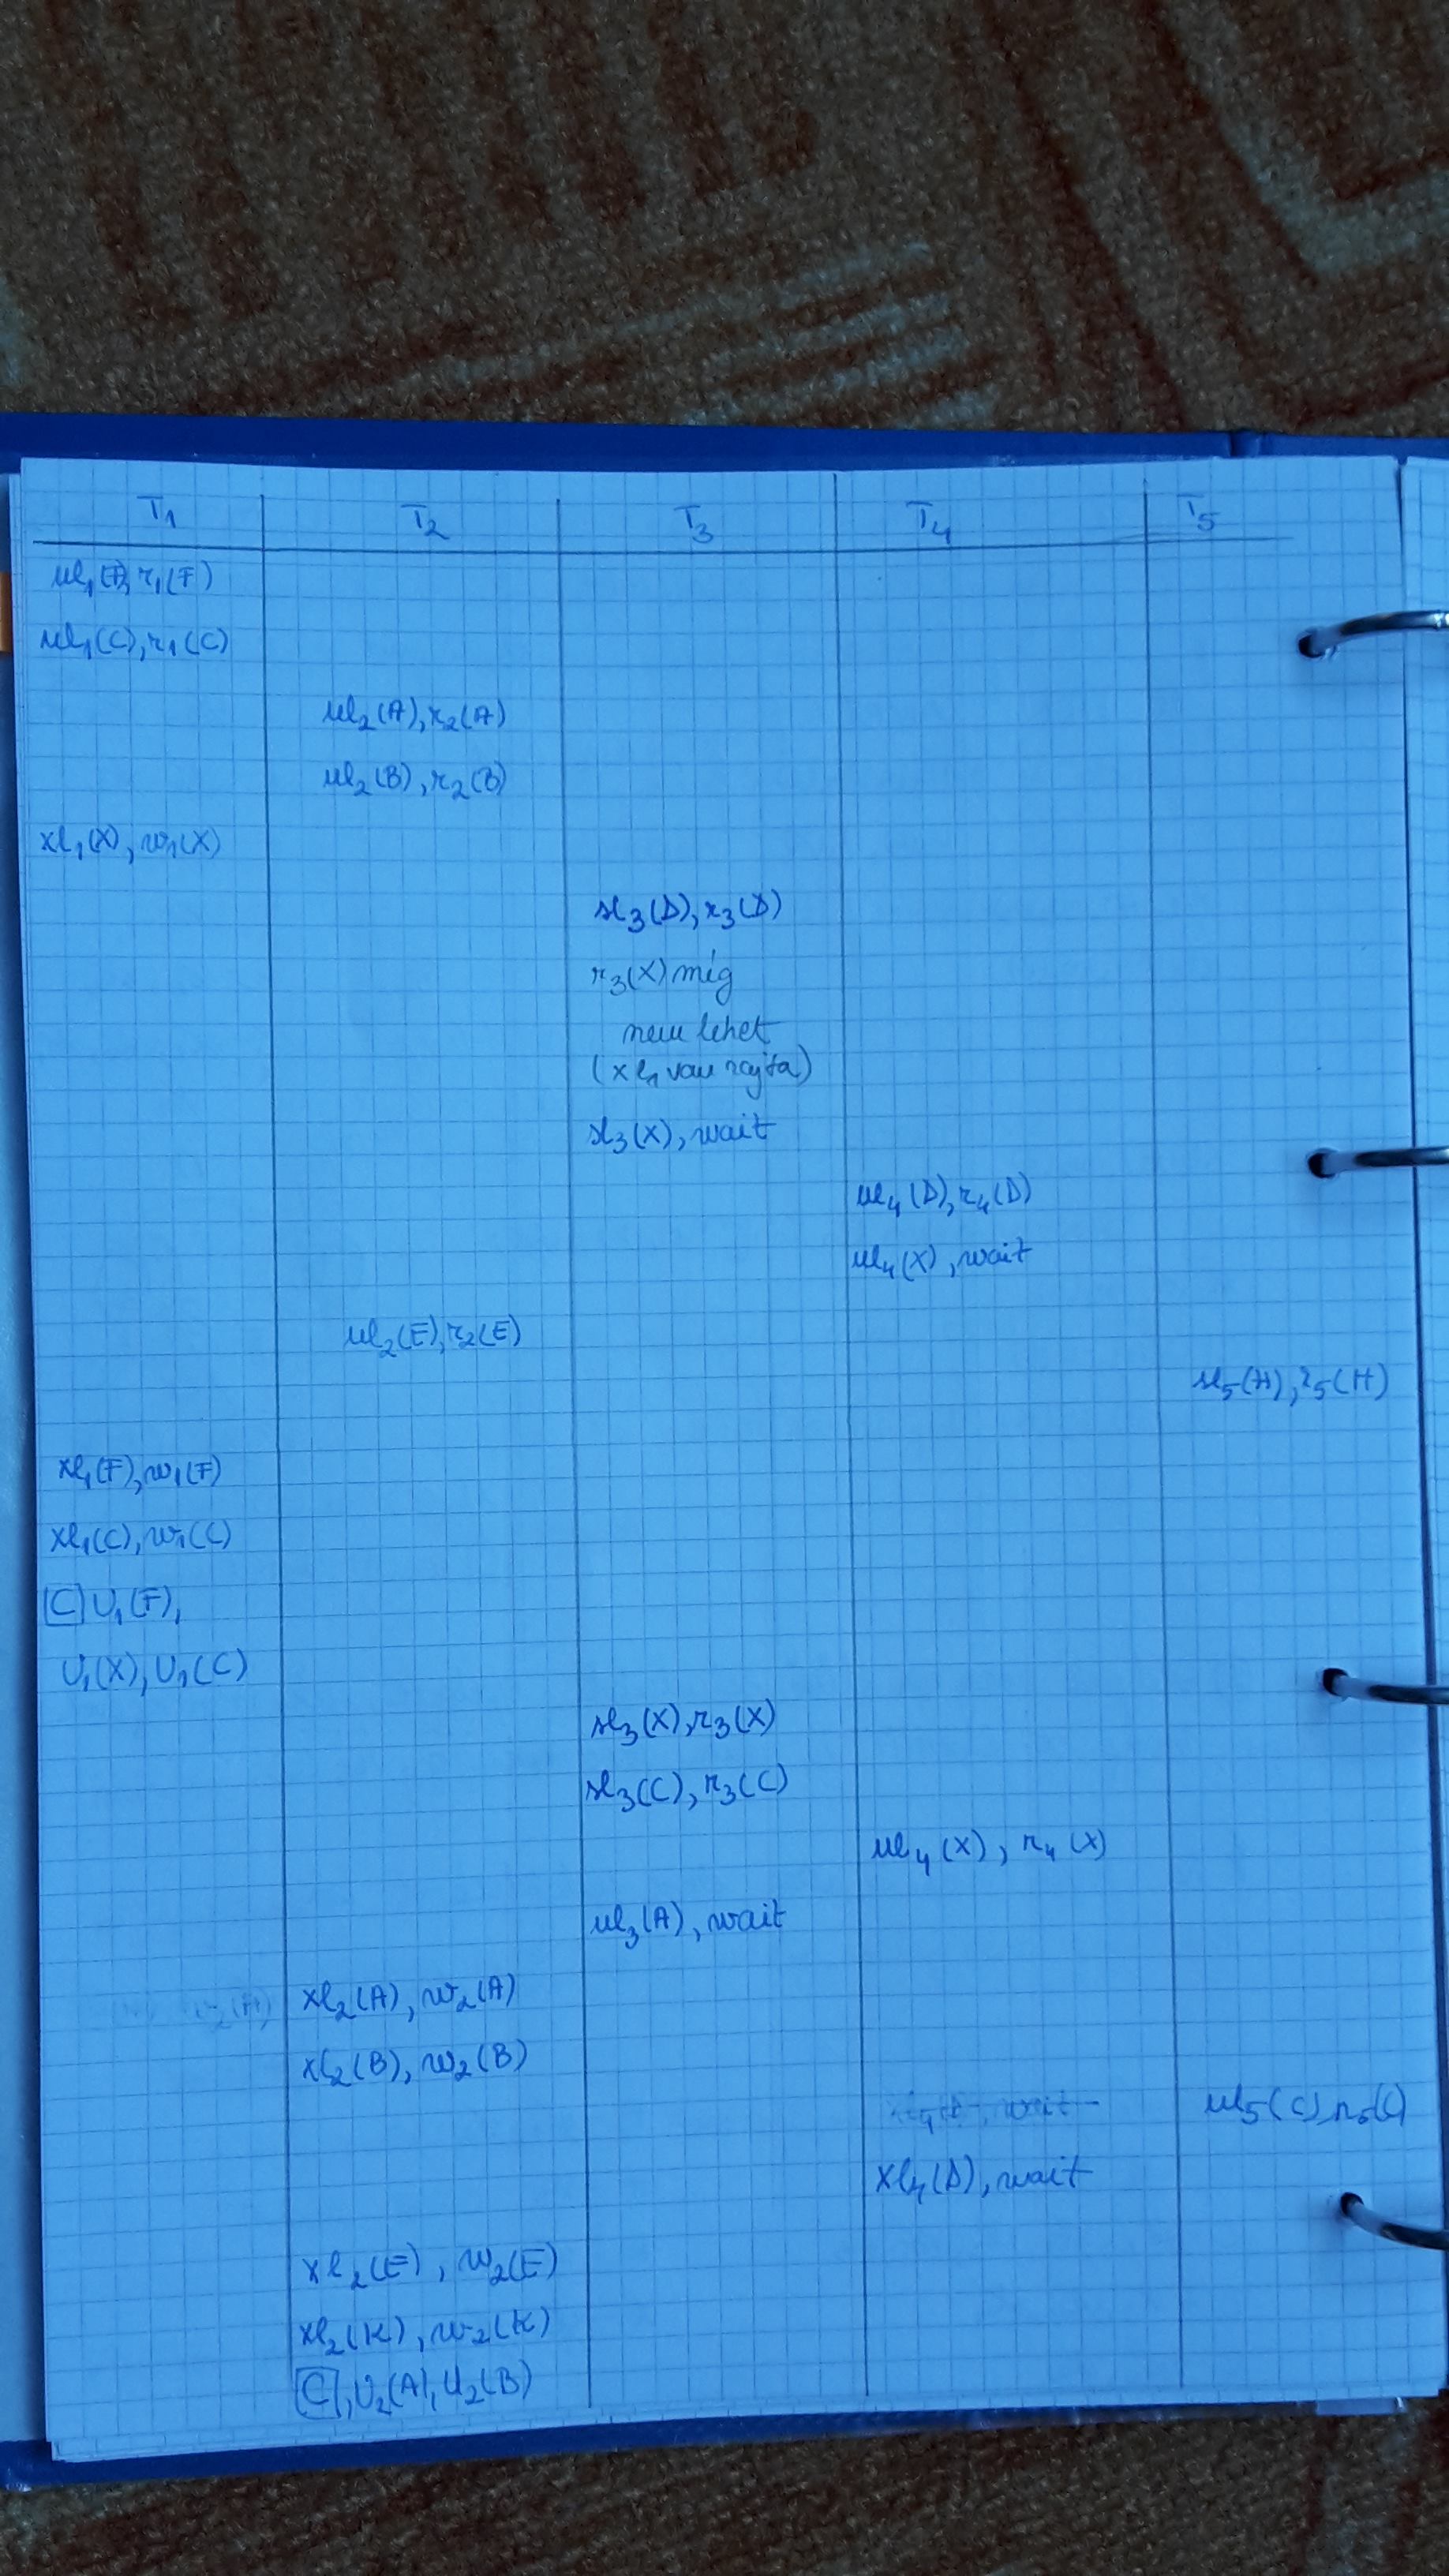 T₁ T₂ T₃ T₄ T₅
ul₁(F), r₁(F)
ul₁(C), r₁(C)
ul₂(A), r₂(A)
ul₂(B), r₂(B)
xl₁(X), w₁(X)
sl₃(D), r₃(D)
r₃(X) míg
nem lehet
(xl₁ van rajta)
sl₃(X), wait
ul₄(D), r₄(D)
ul₄(X), wait
ul₂(E), r₂(E)
sl₅(H), r₅(H)
xl₁(F), w₁(F)
xl₁(C), w₁(C)
C U₁(F),
U₁(X), U₁(C)
sl₃(X), r₃(X)
sl₃(C), r₃(C)
ul₄(X), r₄(X)
ul₃(A), wait
xl₂(A), w₂(A)
xl₂(B), w₂(B)
ul₅(C), r₅(C)
xl₄(D), wait
xl₂(E), w₂(E)
xl₂(K), w₂(K)
C, U₂(A), U₂(B)